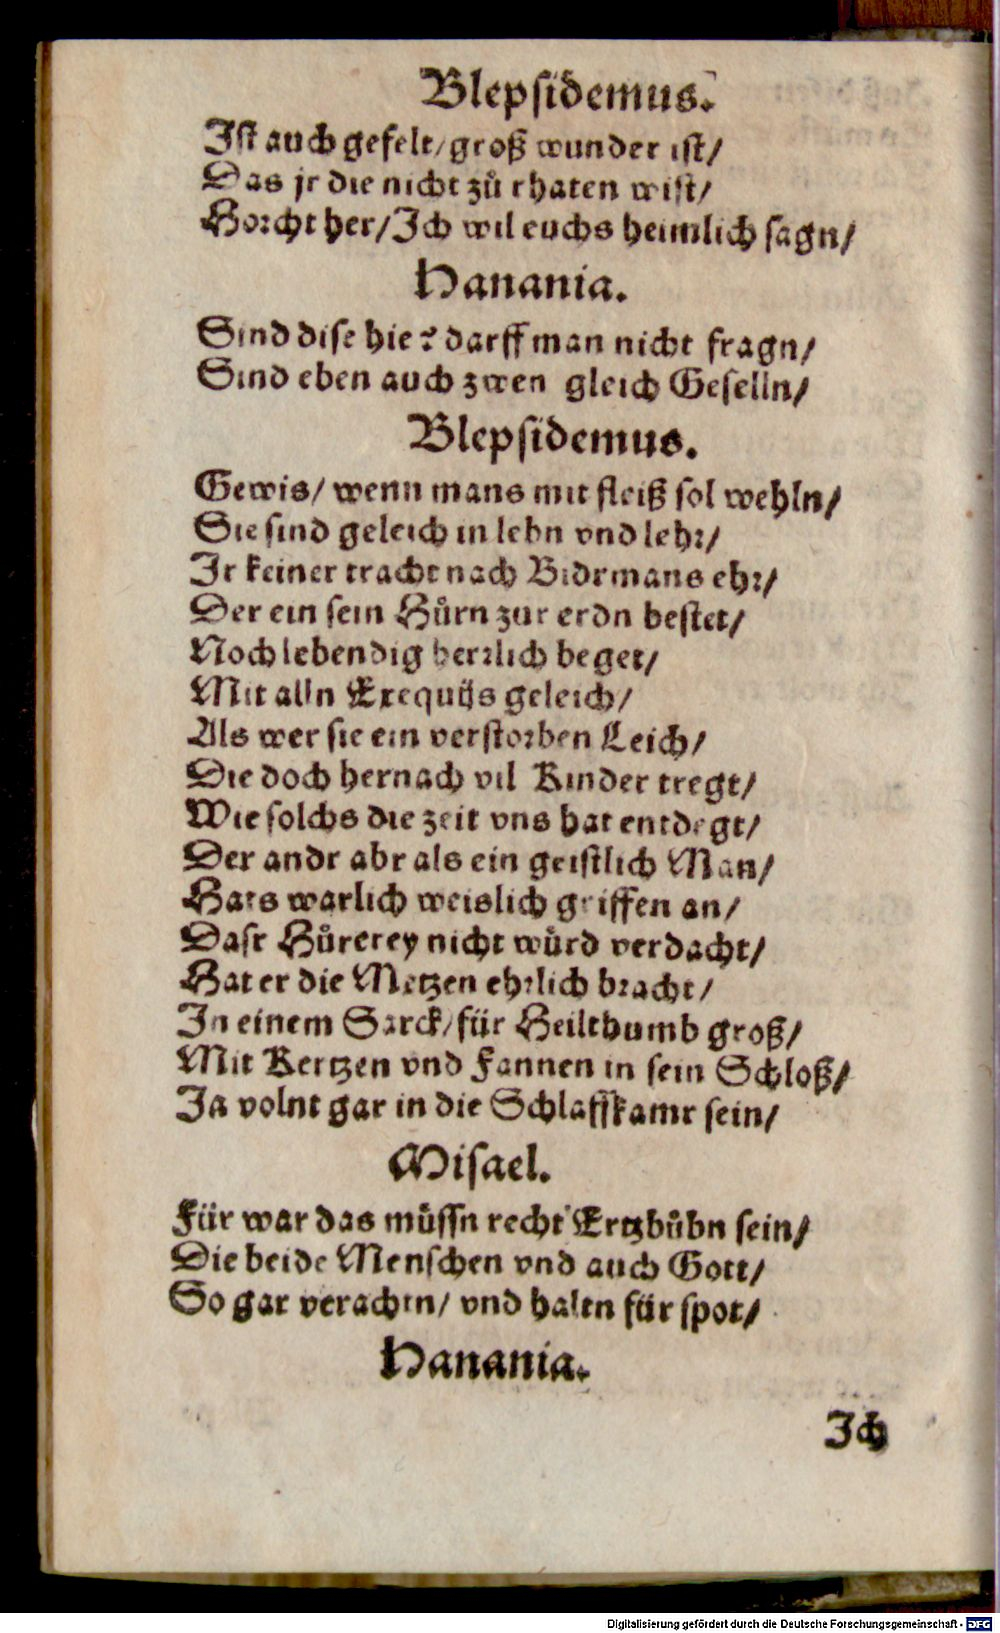 Blepsidemus.
Ist auch gefelt/ groß wunder ist/
Das jr die nicht zů rhaten wist/
Horcht her/ Ich wil euchs heimlich sagn/
Hanania.
Sind dise hie? darff man nicht fragn/
Sind eben auch zwen gleich Geselln/
Blepsidemus.
Gewis/ wenn mans mit fleiß sol wehln/
Sie sind geleich in lebn vnd lehr/
Ir keiner tracht nach Bidrmans ehr/
Der ein sein Hůrn zur erdn bestet/
Noch lebendig herrlich beget/
Mit alln Exequijs geleich/
Als wer sie ein verstorben Leich/
Die doch hernach vil Kinder tregt/
Wie solchs die zeit vns hat entdegt/
Der andr abr als ein geistlich Man/
Hats warlich weislich griffen an/
Dasr Hůrerey nicht würd verdacht/
Hat er die Metzen ehrlich bracht/
In einem Sarck/ für Heilthumb groß/
Mit Kertzen vnd Fannen in sein Schloß/
Ja volnt gar in die Schlaffkamr sein/
Misael.
Für war das můssn recht Ertzbůbn sein/
Die beide Menschen vnd auch Gott/
So gar verachtn/ vnd haltn für spot/
Hanania.
Ich
Digitalisierung gefördert durch die Deutsche Forschungsgemeinschaft - DFG